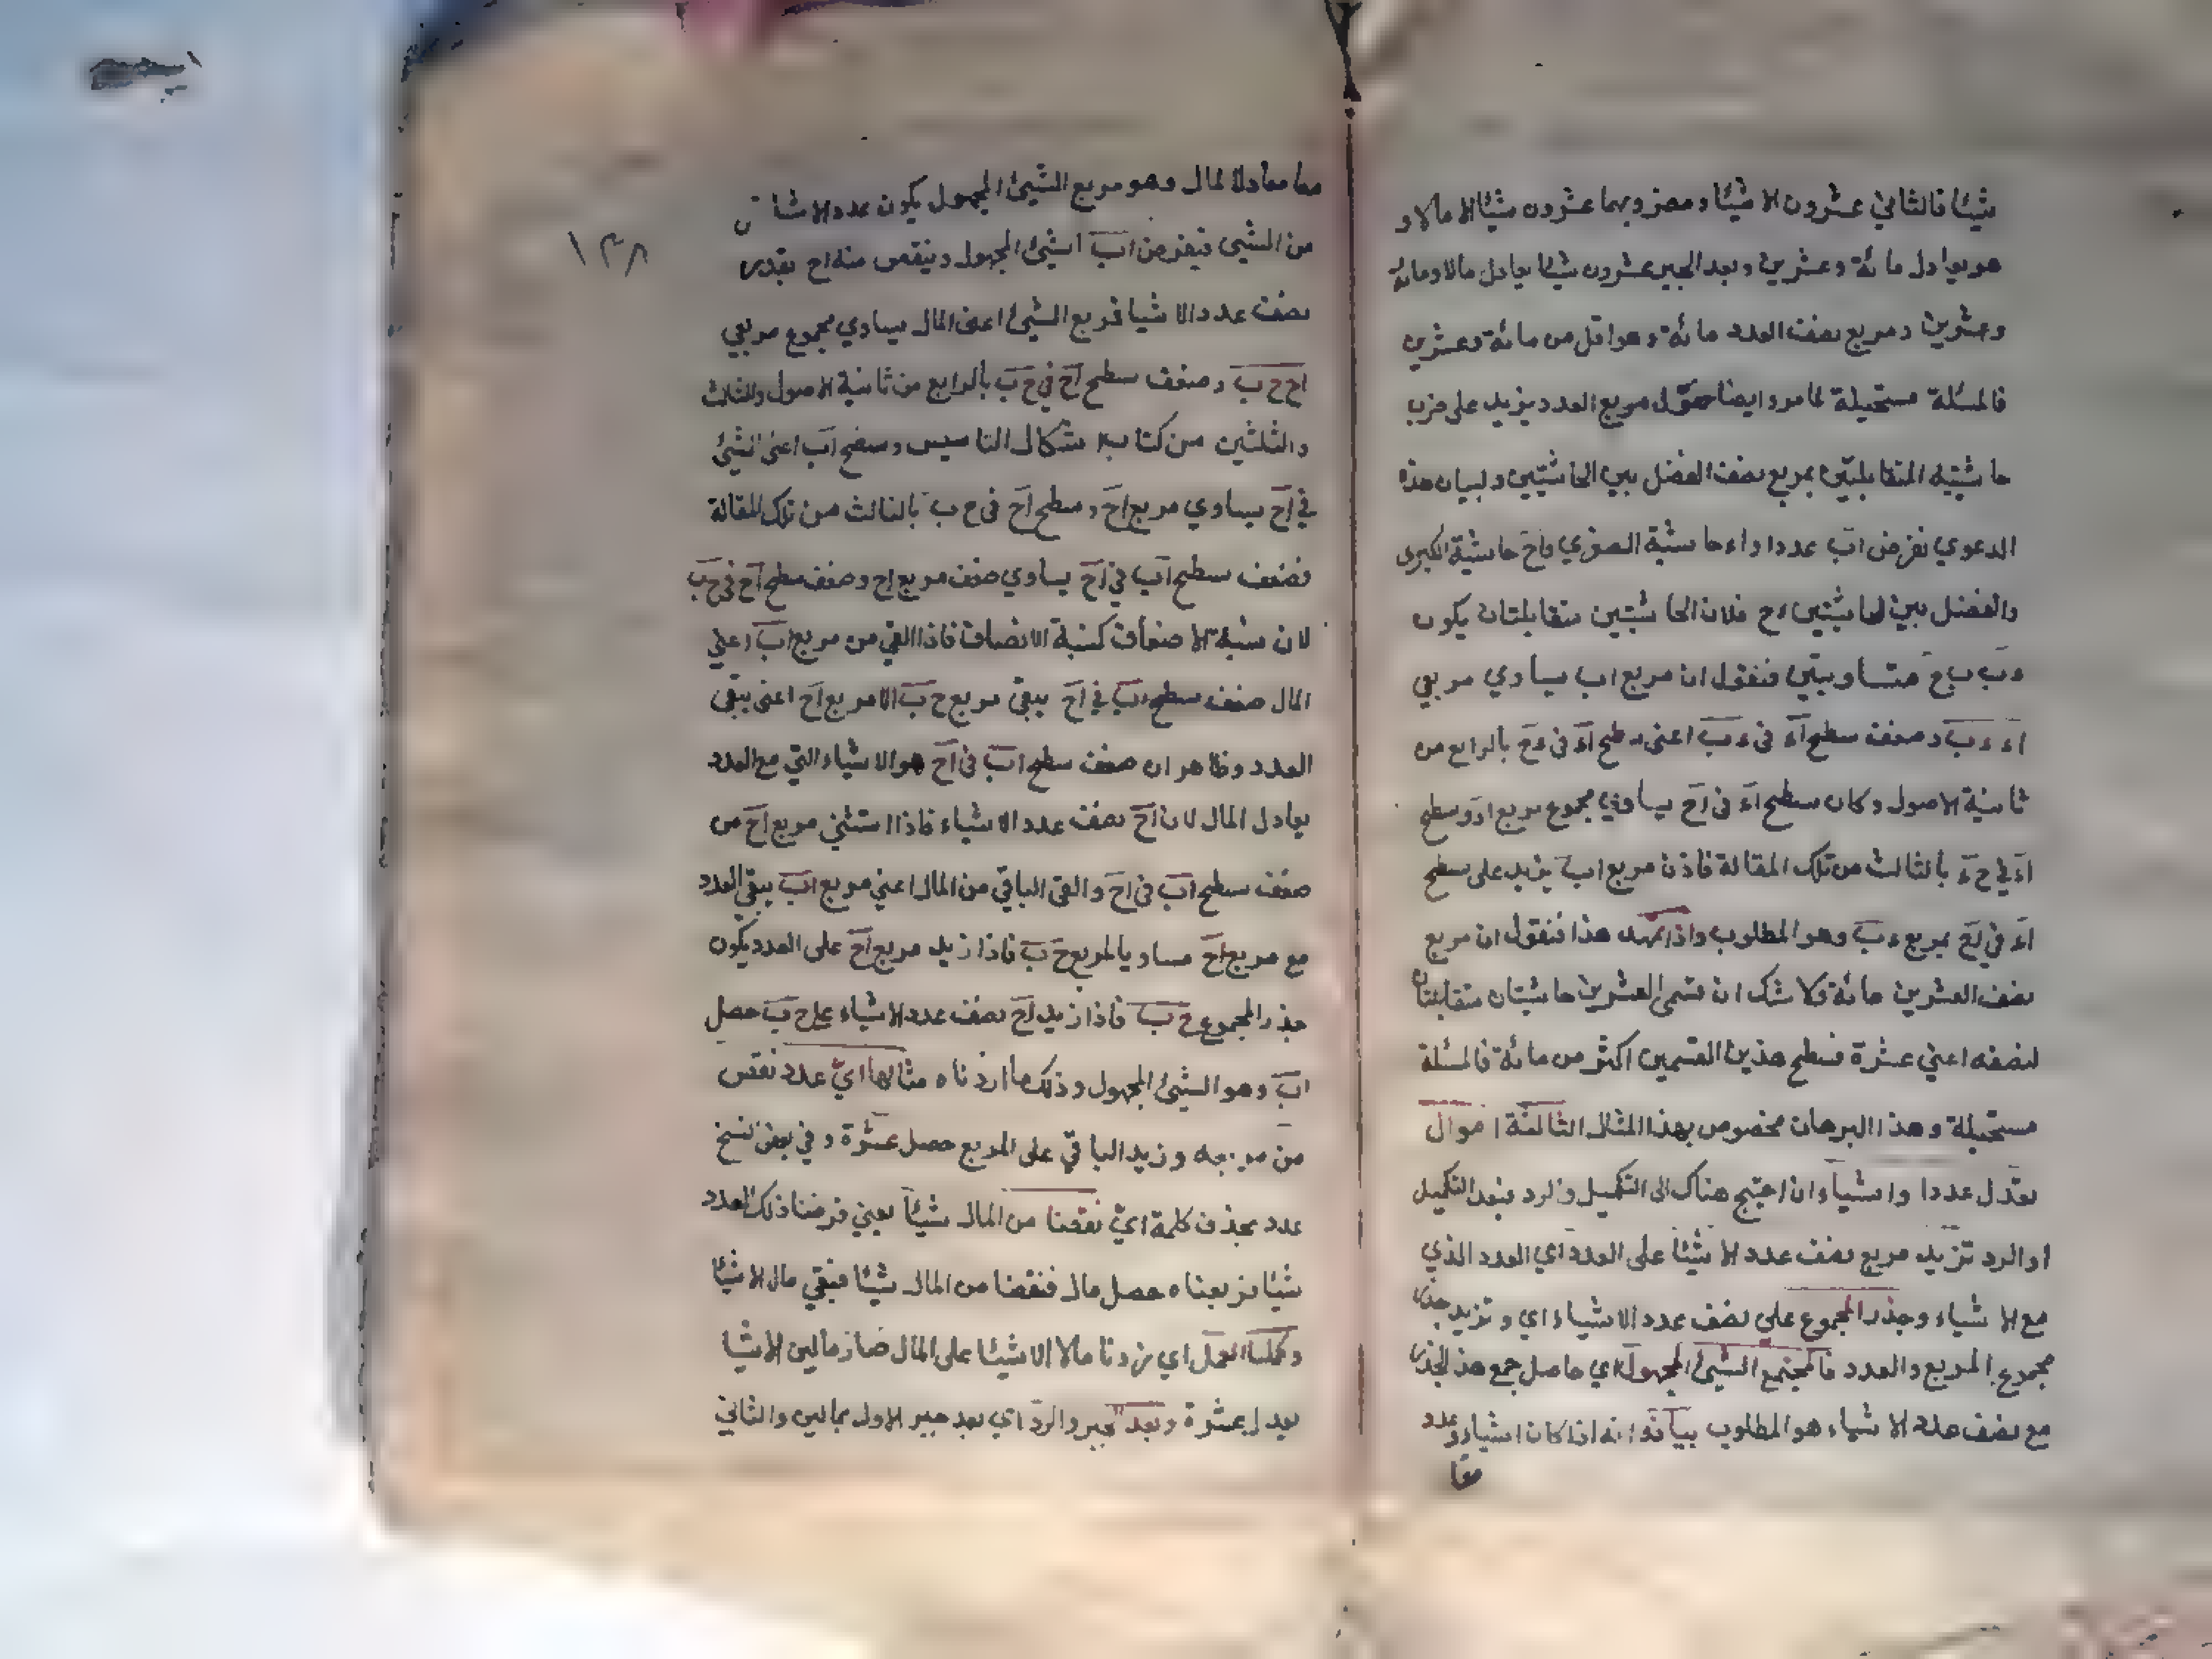 شيئا فالثاني عشرون الا شيئا ومضروبهما عشرون شيئا الا مالا و
هو يعادل مائة وعشرين وبعد الجبر عشرون شيئا يعادل مالا ومائة
وعشرين ومربع نصف العدد مائة وهو اقل من مائة وعشرين
فالمسئلة مستحيلة لما مر وايضا مربع العدد يزيد على ضرب
حاشيتيه المتقابلتين بمربع نصف الفضل بين الحاشيتين ولبيان هذه
الدعوي نفرض اب عددا و اء حاشية الصغري واح حاشية الكبرى
والفضل بين الحاشيتين ءح فلان الحاشيتين متقابلتان يكون
ءب ب ح متساويين فنقول ان مربع اب يساوي مربعي
اء ء ب وضعف سطح اء في ء ب اعنى سطح اء في ءح بالرابع من
ثانية الاصول وكان سطح اء في اح يساوي مجموع مربع اء وسطح
اء في ح ء بالثالث من تلك المقالة فاذن مربع اب يزيد على سطح
اء في اح بمربع ء ب وهو المطلوب واذا تمهد هذا فنقول ان مربع
نصف العشرين مائة ولا شك ان قسمي العشرين حاشيتان متقابلتان
لنصفه اعني عشرة فسطح هذين القسمين اكثر من مائة فالمسئلة
مستحيلة وهذا البرهان مخصوص بهذا المثال الثالثة اموال
تعدل عددا واشياء ان احتيج هناك الى التكميل والرد فبعد التكميل
او الرد تزيد مربع نصف عدد الا شيئا على العدد اي العدد الذي
مع الا شياء وجذر المجموع على نصف عدد الاشياء اي وتزيد جذر
مجموع المربع والعدد فالمجتمع الشيئ المجهول اي حاصل جمع هذ الجذر
مع نصف عدد الا شياء هو المطلوب بيانه انه اذا كان اشياء وعدد
معا
معا معادلا لمال وهو مربع الشيئ المجهول يكون عدد الا شيا
من الشيى فيفرض اب الشيئ المجهول وينقص منه اح بقدر
نصف عدد الا شيا فربع الشيئ اعنى المال يساوي مجموع مربعي
اح ح ب وضعف سطح اح في ح ب بالرابع من ثانية الاصول والثالث
والثلثين من كتاب اشكال التاسيس وسطح اب اعنى الشيئ
في اح يساوي مربع اح وسطح اح فى ح ب بالثالث من تلك المقالة
فضعف سطح اب في اح يساوي ضعف مربع اح وضعف سطح اح في ح ب
لان نسبة الا ضعاف كنسبة الانصاف فاذا القي من مربع اب اعني
المال ضعف سطح اب في اح يبقى مربع ح ب الا مربع اح اعنى يبقى
العدد وظاهر ان ضعف سطح اب في اح هو الاشياء التي مع العدد
يعادل المال لان اح نصف عدد الاشياء فاذا استثني مربع اح من
ضعف سطح اب في اح والقى الباقي من المال اعني مربع اب يبقى العدد
مع مربع اح مساويا لمربع ح ب فاذا زيد مربع اح على العدد يكون
جذر المجموع ح ب فاذا زيد اح نصف عدد الا شياء على ح ب حصل
اب وهو الشيئ المجهول وذلك ما اردناه مثالها اي عدد نقص
من مربعه وزيد الباقي على المربع حصل عشرة وفي بعض النسخ
عدد بحذف كلمة اي نقصنا من المال شيئا يعني فرضنا ذلك العدد
شيئا ربعناه حصل مال فنقصنا من المال شيئا فبقي مال الا شيئا
وكملنا العمل اي زدنا مالا الا شيئا على المال صار مالين الا شيئا
يعدل عشرة وبعد الجبر والرد اي بعد جبر الاول بمالين والثاني
١٣٨